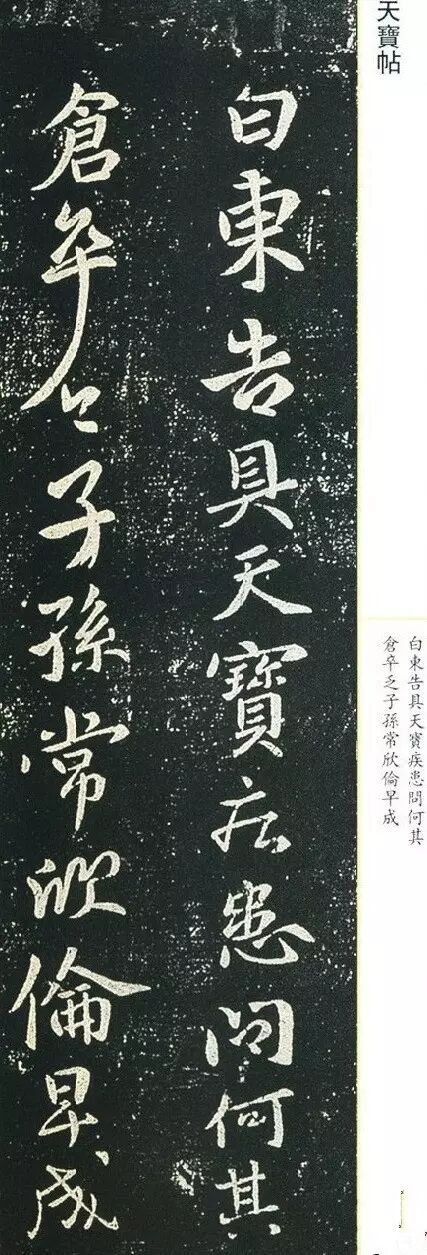 天寶帖
白東告具天寶疾患問何其
倉卒乏子孫常欣倫早成
白東告具天寶疾患問何其
倉卒乏子孫常欣倫早成